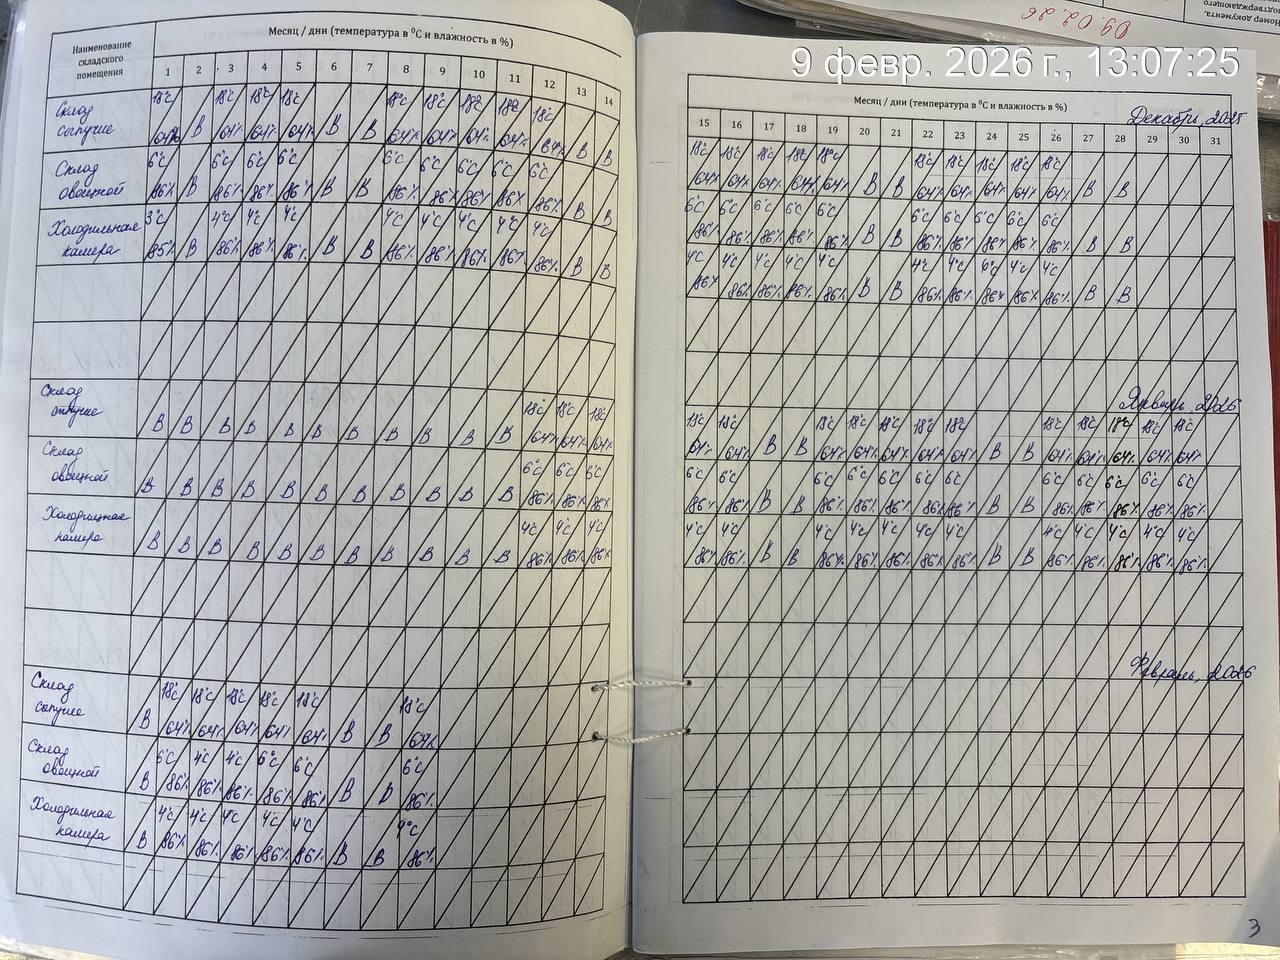 Номер документа,
подтверждающего
09.02.26
9 февр. 2026 г., 13:07:25
Наименование складского помещения
Месяц / дни (температура в ⁰С и влажность в %)
1 2 3 4 5 6 7 8 9 10 11 12 13 14
Склад сыпучие 18°С 64% В 18°С 64% 18°С 64% 18°С 64% В В 18°С 64% 18°С 64% 18°С 64% 18°С 64% 18°С 64% В В
Склад овощной 6°С 86% В 6°С 86% 6°С 86% 6°С 86% В В 6°С 86% 6°С 86% 6°С 86% 6°С 86% 6°С 86% В В
Холодильная камера 3°С 85% В 4°С 86% 4°С 86% 4°С 86% В В 4°С 86% 4°С 86% 4°С 86% 4°С 86% 4°С 86% В В
Склад В В В В В В В В В В В 18°С 64% 18°С 64% 18°С 64%
Склад овощной В В В В В В В В В В В 6°С 86% 6°С 86% 6°С 86%
камера В В В В В В В В В В В 4°С 86% 4°С 86% 4°С 86%
Склад сыпучие В 18°С 64% 18°С 64% 18°С 64% 18°С 64% 18°С 64% В В 18°С 64%
Склад овощной В 6°С 86% 4°С 86% 4°С 86% 6°С 86% 6°С 86% В В 6°С 86%
Холодильная камера В 4°С 86% 4°С 86% 4°С 86% 4°С 86% 4°С 86% В В 4°С 86%
Месяц / дни (температура в ⁰С и влажность в %)
Декабрь, 2025
15 16 17 18 19 20 21 22 23 24 25 26 27 28 29 30 31
18°С 64% 18°С 64% 18°С 64% 18°С 64% 18°С 64% В В 18°С 64% 18°С 64% 18°С 64% 18°С 64% 18°С 64% В В
6°С 86% 6°С 86% 6°С 86% 6°С 86% 6°С 86% В В 6°С 86% 6°С 86% 6°С 86% 6°С 86% 6°С 86% В В
4°С 86% 4°С 86% 4°С 86% 4°С 86% 4°С 86% В В 4°С 86% 4°С 86% 86% 4°С 86% 4°С 86% В В
Январь, 2026
18°С 64% 18°С 64% В В 18°С 64% 18°С 64% 18°С 64% 18°С 64% 18°С 64% В В 18°С 64% 18°С 64% 18°С 64% 18°С 64% 18°С 64%
6°С 86% 6°С 86% В В 6°С 86% 6°С 86% 6°С 86% 6°С 86% 6°С 86% В В 6°С 86% 6°С 86% 6°С 86% 6°С 86% 6°С 86%
4°С 86% 4°С 86% В В 4°С 86% 4°С 86% 4°С 86% 4°С 86% 4°С 86% В В 4°С 86% 4°С 86% 4°С 86% 4°С 86% 4°С 86%
Февраль, 2026
3